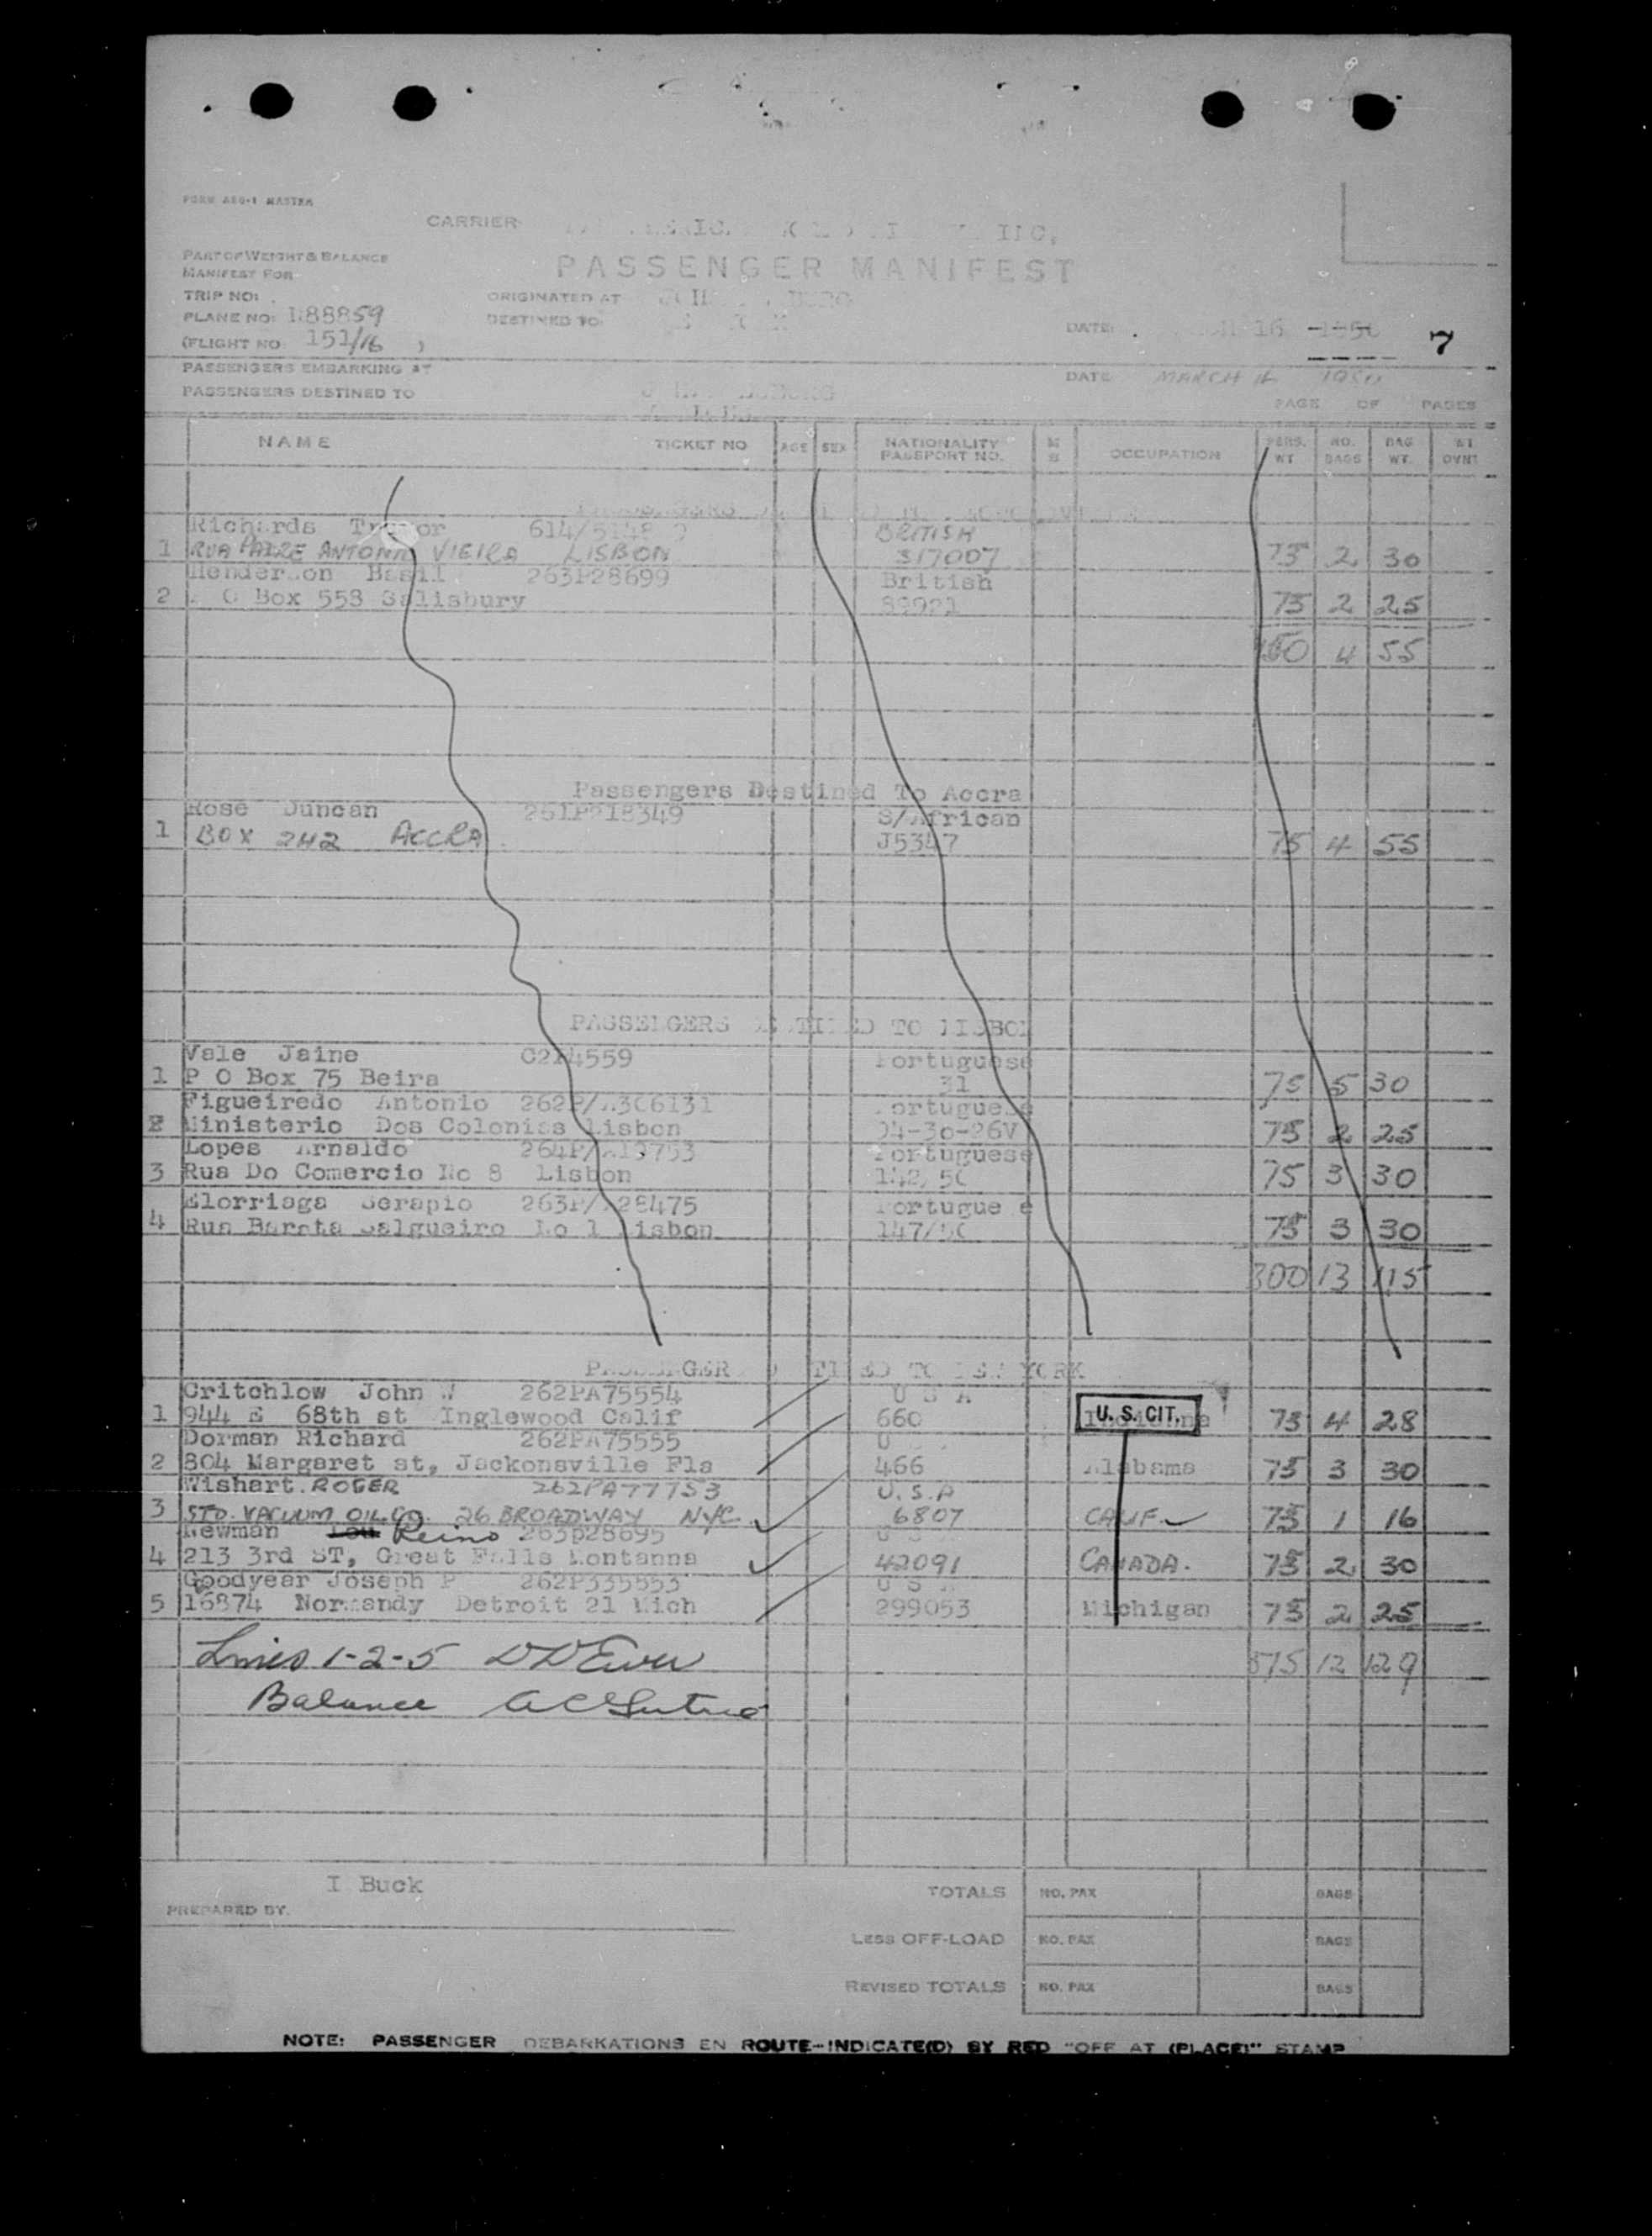 FORM ABO-1 MASTER
CARRIER INC.
PART OF WEIGHT & BALANCE
MANIFEST FOR
PASSENGER MANIFEST
TRIP NO:
ORIGINATED AT
PLANE NO: N88859
DESTINED TO:
DATE: 16 1950 7
(FLIGHT NO. 151/16 )
PASSENGERS EMBARKING AT
DATE MARCH 16 1950
PASSENGERS DESTINED TO
PAGE OF PAGES
NAME TICKET NO AGE SEX NATIONALITY PASSPORT NO. M S OCCUPATION PERS. WT NO. BAGS BAG WT. WT OVNT
Richards Trevor BRITISH
1 RUA PADRE ANTONIO VIEIRA LISBON 317007 75 2 30
Henderson Basil 263P28699 British
2 P O Box 558 Salisbury 75 2 25
150 4 55
Passengers Destined To Accra
Rose Duncan 251P218349 S/African
1 BOX 242 ACCRA J5347 75 4 55
PASSENGERS DESTINED TO LISBON
Vale Jaine Portuguese
1 P O Box 75 Beira 31 75 5 30
Figueiredo Antonio Portuguese
2 Ministerio Dos Colonias Lisbon 04-30-26V 75 2 25
Lopes Arnaldo Portuguese
3 Rua Do Comercio No 8 Lisbon 142/50 75 3 30
Elorriaga Serapio Portuguese
4 Rua Barata Salgueiro No 1 Lisbon 147/50 75 3 30
300 13 115
PASSENGERS DESTINED TO NEW YORK
Critchlow John W 262PA75554 U S A
1 944 E 68th st Inglewood Calif 660 Indiana U. S. CIT. 75 4 28
Dorman Richard 262PA75555 U
2 804 Margaret st, Jackonsville Fla 466 Alabama 75 3 30
Wishart ROGER 262PA77753 U.S.A
3 STD. VACUUM OIL CO. 26 BROADWAY NYC. 6807 CALIF. 75 1 16
Newman Reino 263p28695 U
4 213 3rd ST, Great Falls Montanna 42091 CANADA. 75 2 30
Goodyear Joseph P 262P335553 U S
5 16874 Normandy Detroit 21 Mich 299053 Michigan 75 2 25
Lines 1-2-5
375 12 129
Balance
I Buck
PREPARED BY.
TOTALS NO. PAX BAGS
LESS OFF-LOAD NO. PAX BAGS
REVISED TOTALS NO. PAX BAGS
NOTE: PASSENGER DEBARKATIONS EN ROUTE--INDICATE(D) BY RED "OFF AT (PLACE)" STAMP